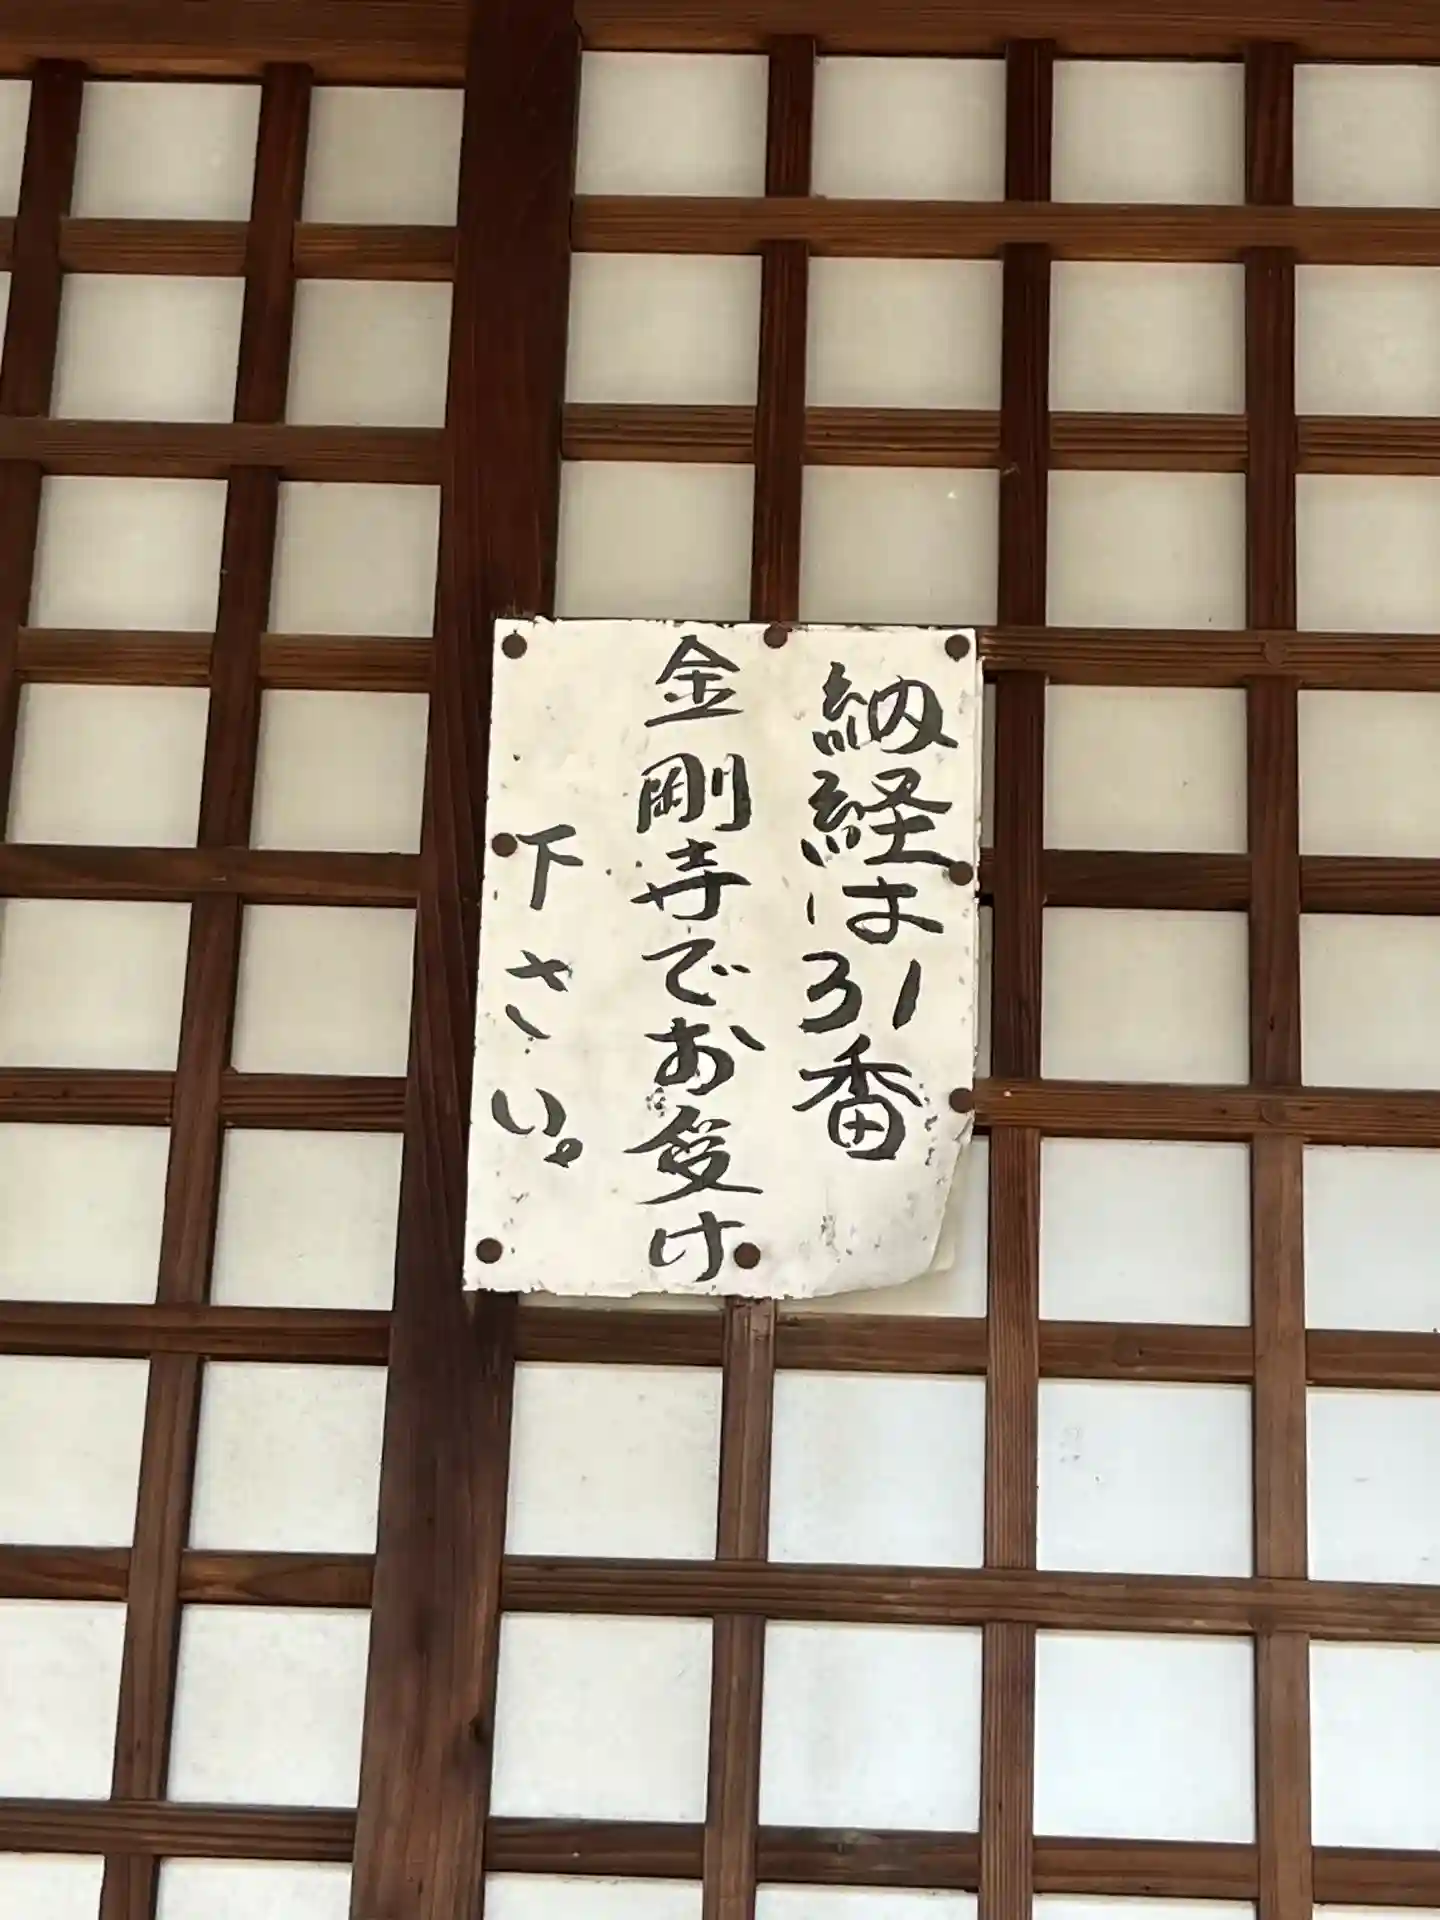 納経は31番
金剛寺でお受け
下さい。